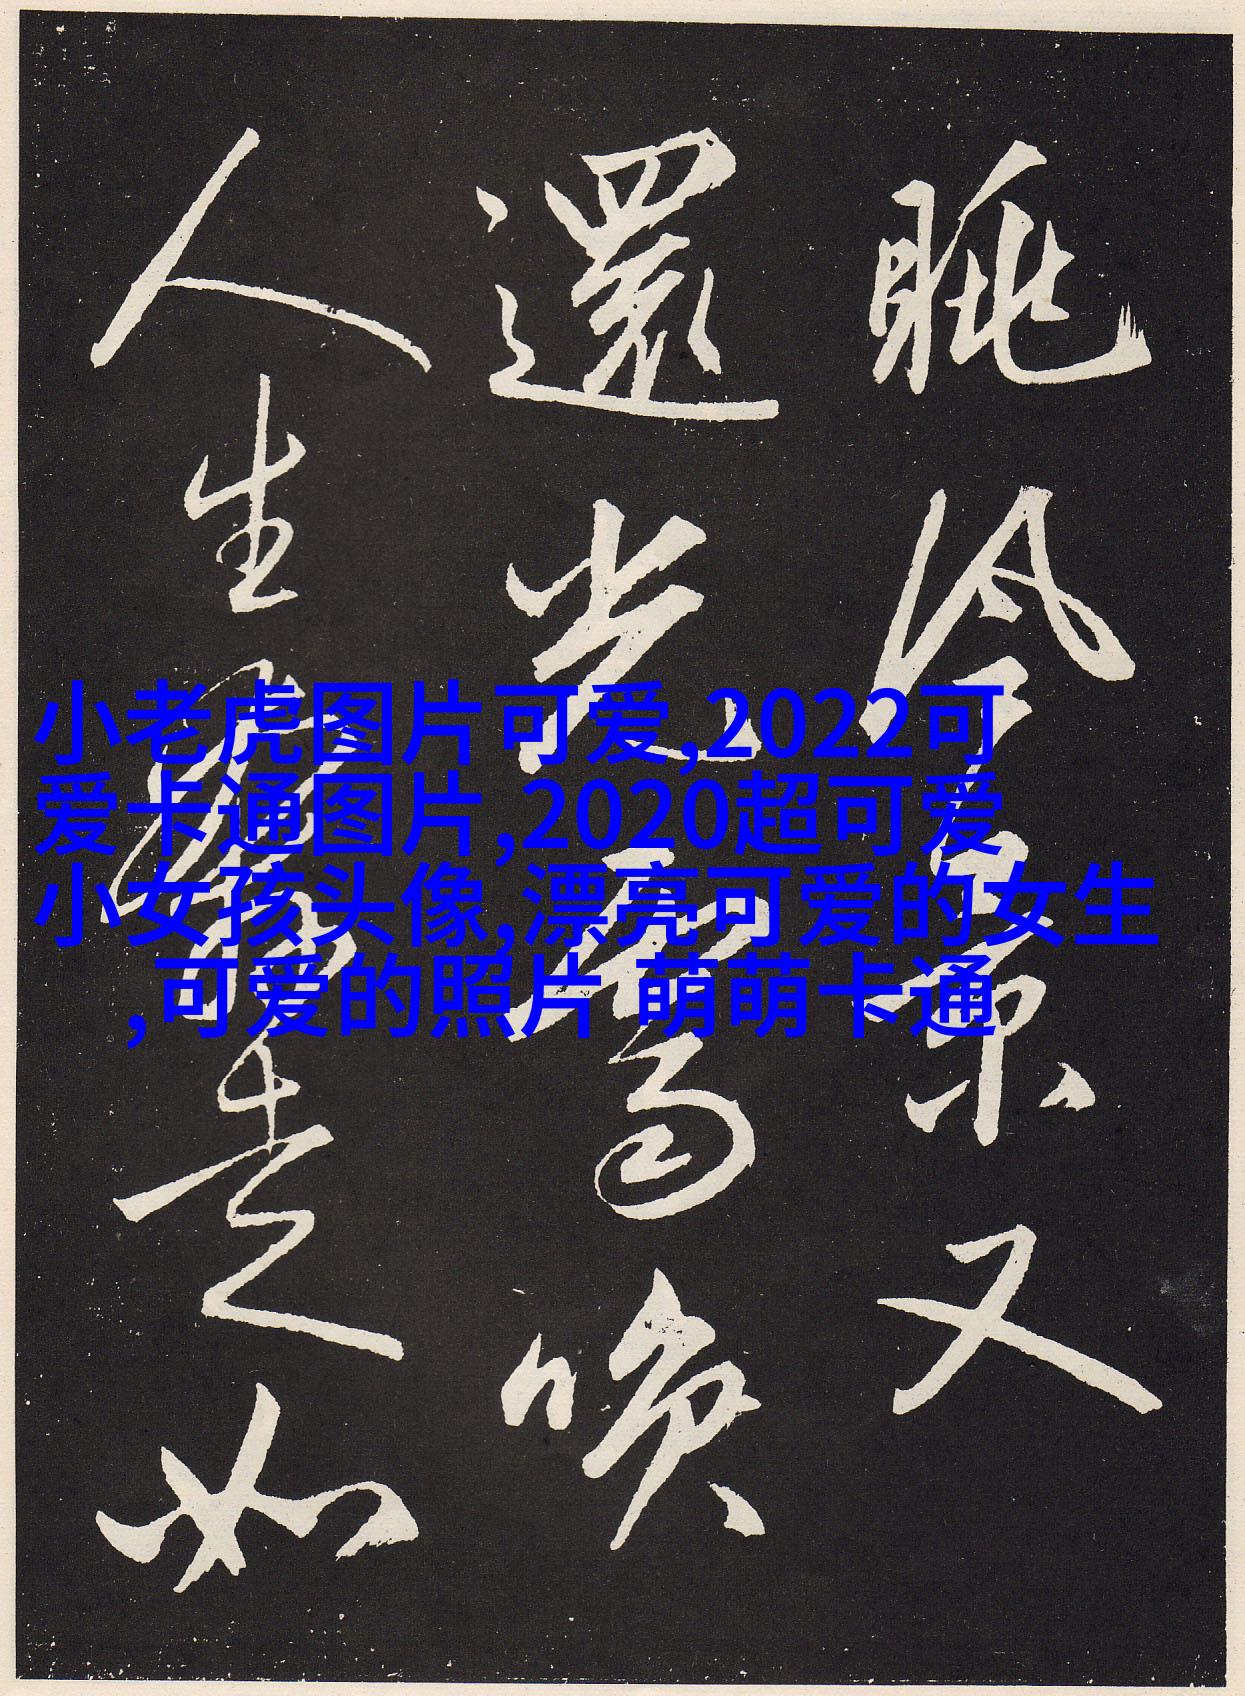 小老虎图片可爱,2022可
爱卡通图片,2020超可爱
小女孩头像,漂亮可爱的女生
,可爱的照片 萌萌卡通
眺冷景又
還喚
人生如